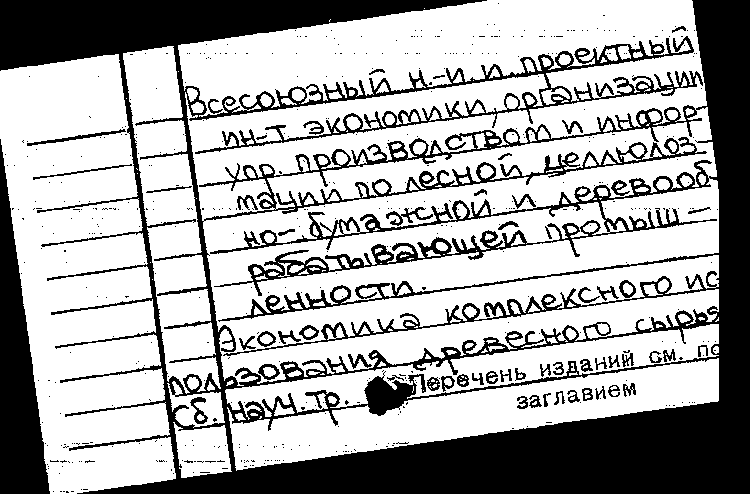 Всесоюзный н.-и. и проектный
ин-т экономики, организации
упр. производством и инфор-
мации по лесной, целлюлоз-
но-бумажной и деревооб-
рабатывающей промыш-
ленности.
Экономика комплексного ис
пользования древесного сырья
Сб. науч. тр.
Перечень изданий см. по
заглавием